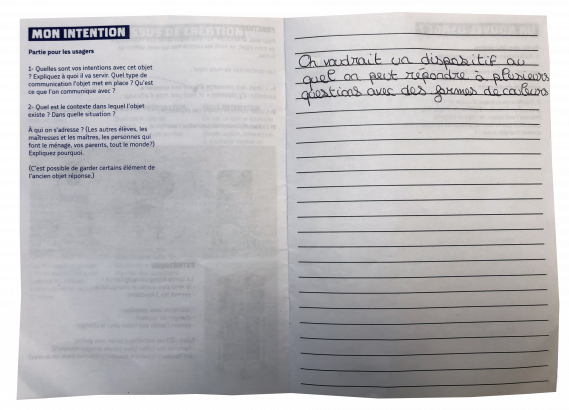 MON INTENTION
Partie pour les usagers
1- Quelles sont vos intentions avec cet objet
? Expliquez à quoi il va servir. Quel type de
communication l'objet met en place ? Qu'est
ce que l'on communique avec ?
2- Quel est le contexte dans lequel l'objet
existe ? Dans quelle situation ?
À qui on s'adresse ? (Les autres élèves, les
maîtresses et les maîtres, les personnes qui
font le ménage, vos parents, tout le monde?)
Expliquez pourquoi.
(C'est possible de garder certains élément de
l'ancien objet réponse.)
On voudrait un dispositif au
quel on peut répondre à plusieurs
questions avec des formes de couleurs